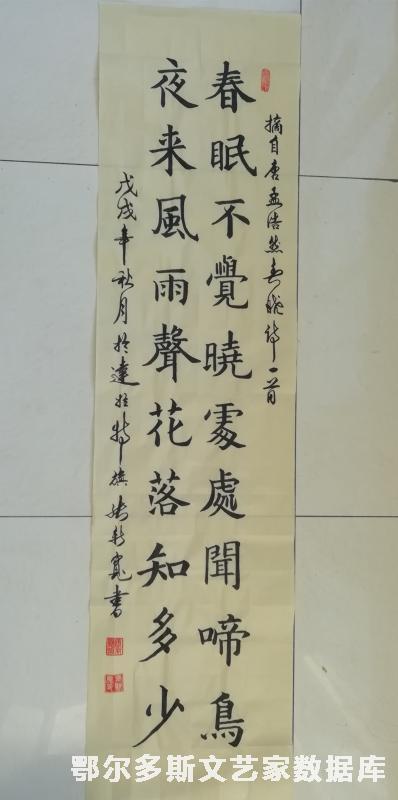 摘自唐孟浩然春曉詩一首
春眠不覺曉處處聞啼鳥
夜来風雨聲花落知多少
戊戌年秋月於達拉特旗
書
鄂尔多斯文艺家数据库